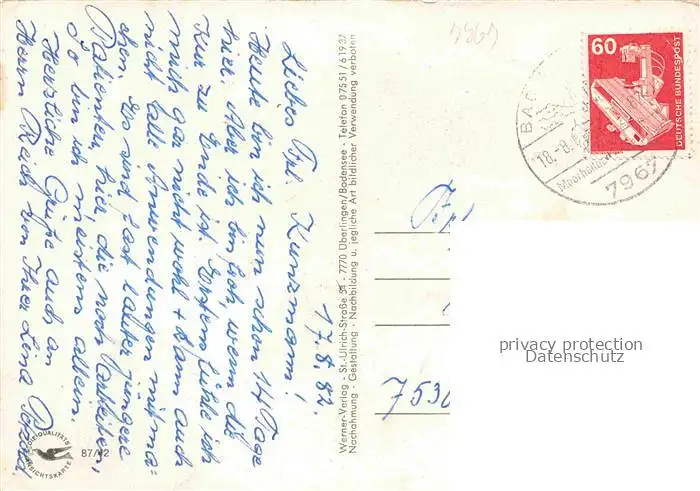 17.8.82.
Liebes Frl. Kunzmann!
Heute bin ich nun schon 14 Tage
hier. Aber ich bin froh, wenn die
Kur zu Ende ist. Erstens fühle ich
mich gar nicht wohl + kann auch
nicht alle Anwendungen mitma=
chen. Es sind fast lauter jüngere
Patienten, hier die noch arbeiten,
So bin ich meistens allein.
Herzliche Grüße auch an
Herrn Rech von Ihrer Lina
87/42
Werner-Verlag - St.-Ulrich-Straße - 7770 Überlingen/Bodensee - Telefon 07551/61937
Nachahmung - Gestaltung - Nachbildung u. jegliche Art bildlicher Verwendung verboten
7967
60
DEUTSCHE BUNDESPOST
BAD
18.-8.
7967
753
privacy protection
Datenschutz